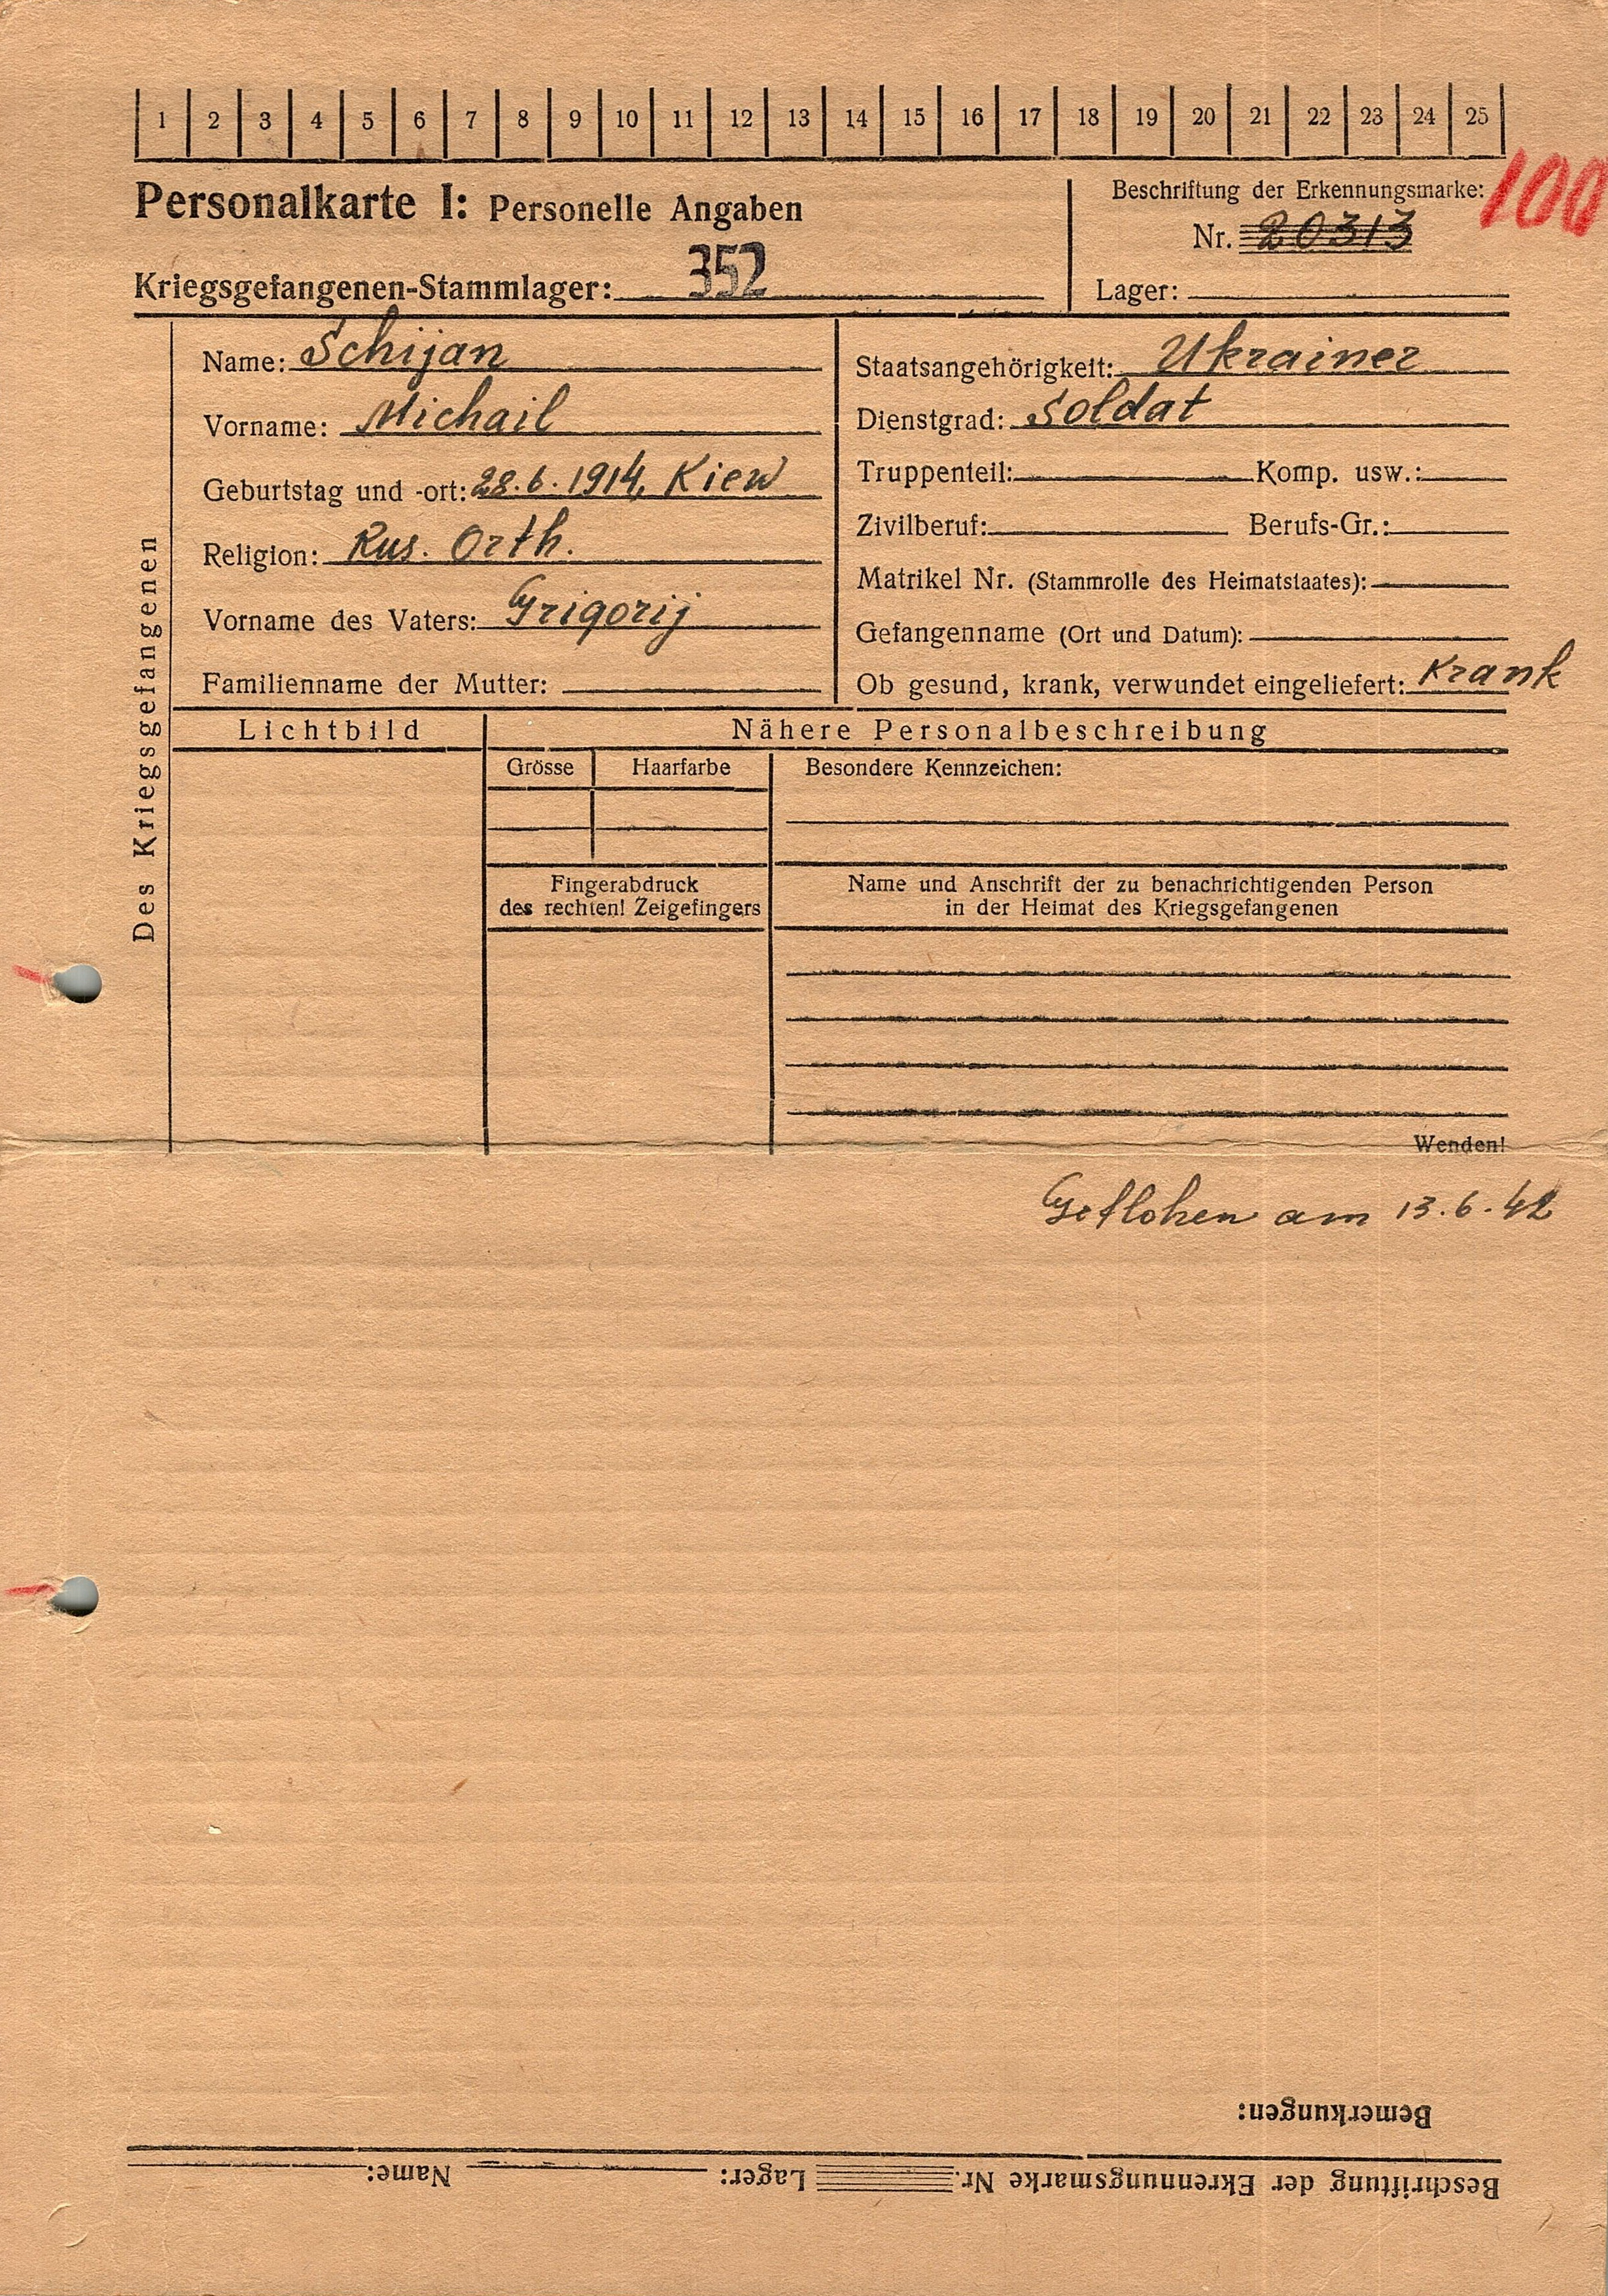 1 2 3 4 5 6 7 8 9 10 11 12 13 14 15 16 17 18 19 20 21 22 23 24 25
100
Personalkarte I: Personelle Angaben
Beschriftung der Erkennungsmarke:
Nr. 20313
Kriegsgefangenen-Stammlager: 352
Lager:
Des Kriegsgefangenen
Name: Schijan
Vorname: Michail
Geburtstag und -ort: 28.6.1914, Kiew
Religion: Rus. Orth.
Vorname des Vaters: Grigorij
Familienname der Mutter:
Staatsangehörigkeit: Ukrainer
Dienstgrad: Soldat
Truppenteil: Komp. usw.:
Zivilberuf: Berufs-Gr.:
Matrikel Nr. (Stammrolle des Heimatstaates):
Gefangenname (Ort und Datum):
Ob gesund, krank, verwundet eingeliefert: Krank
Lichtbild
Nähere Personalbeschreibung
Grösse Haarfarbe
Besondere Kennzeichen:
Fingerabdruck
des rechten! Zeigefingers
Name und Anschrift der zu benachrichtigenden Person
in der Heimat des Kriegsgefangenen
Wenden!
Geflohen am 13.6.42
Bemerkungen:
Beschriftung der Ekrennungsmarke Nr. Lager: Name: